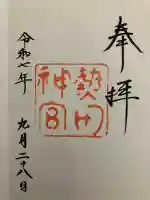 奉拝
熱田
神宮
令和七年
九月二十八日